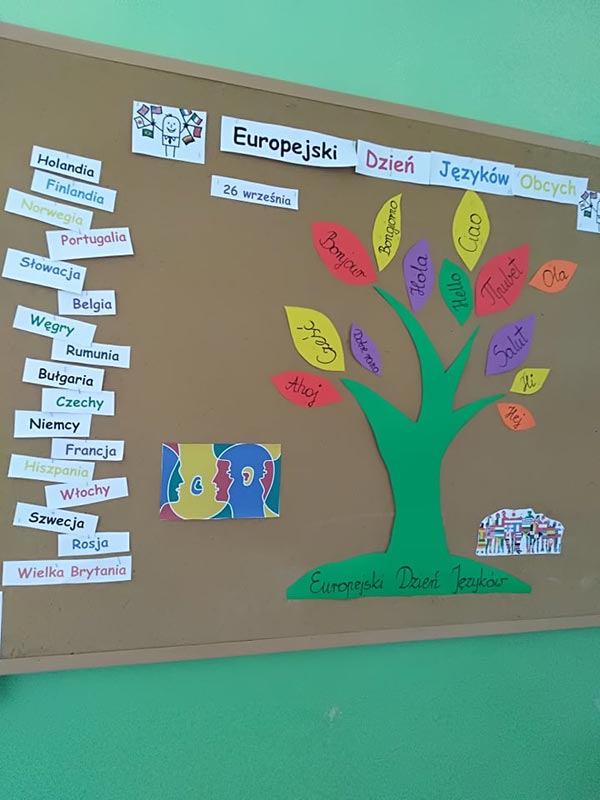 Europejski Dzień Języków Obcych
26 września
Holandia
Finlandia
Norwegia
Portugalia
Słowacja
Belgia
Węgry
Rumunia
Bułgaria
Czechy
Niemcy
Francja
Hiszpania
Włochy
Szwecja
Rosja
Wielka Brytania
Bonjour
Bongiorno
Hola
Ciao
Hello
Привет
Ola
Cześć
Dobre rano
Ahoj
Salut
Hi
Hej
Europejski Dzień Języków